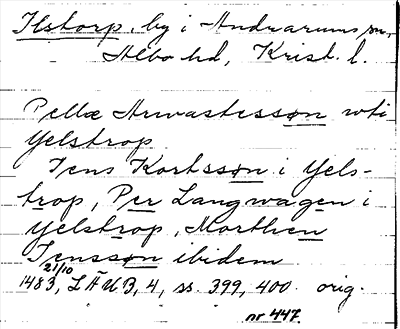 Ilstorp, by i Andrarums sn,
Albo hd, Krist. l.
Pellæ Arwastesson wti
Yelstrop
Iens Kortsson i Yels-
trop, Per Langwagen i
Yelstrop, Morthen
Iensson ibidem
21/10
1483, LÄUB, 4, ss. 399, 400. orig.
nr 447.